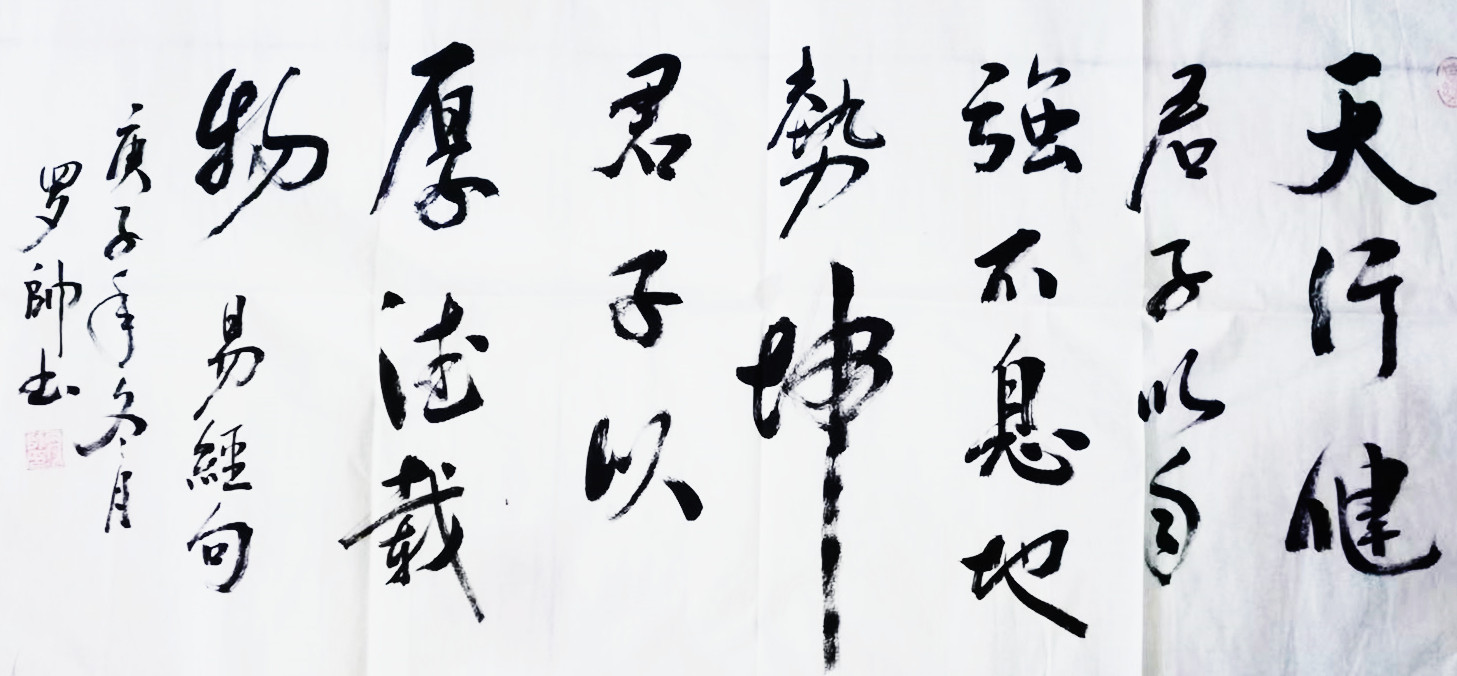 天行健
君子以自
強不息地
勢坤
君子以
厚德載
物 易經句
庚子年冬月
罗帥书